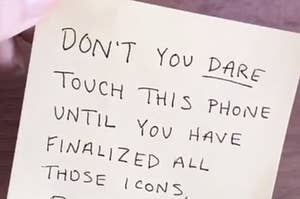 DON'T YOU DARE
TOUCH THIS PHONE
UNTIL YOU HAVE
FINALIZED ALL
THOSE ICONS,